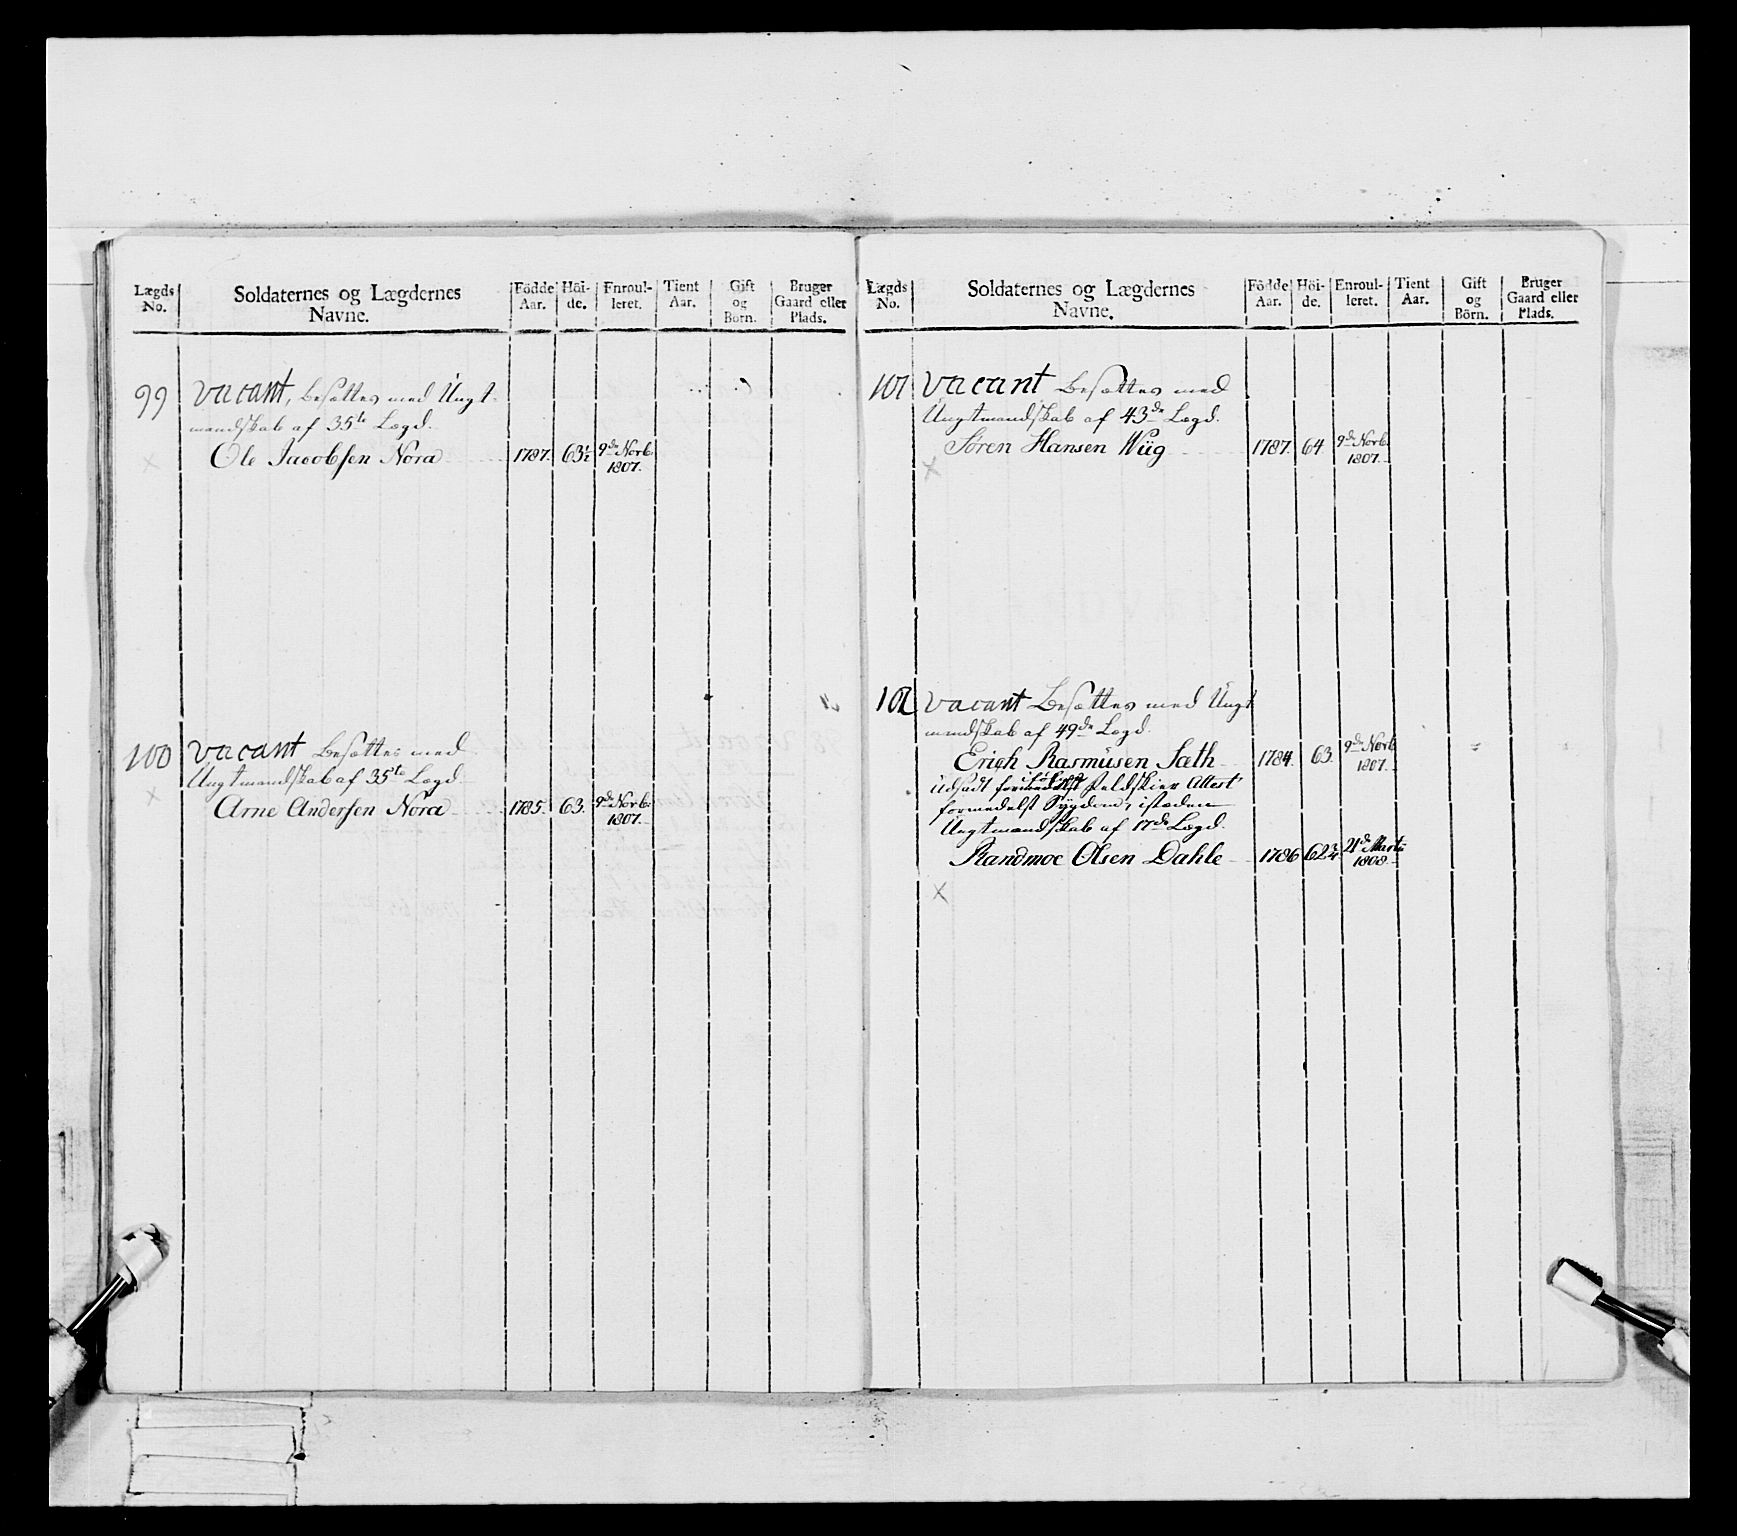 Lægds No. | Soldaternes og Lægdernes Navne. | Födde Aar. | Höi-de. | Enroul-leret. | Tient Aar. | Gift og Born. | Bruger Gaard eller Plads.
99 vacant, Besættes med Ungt-
mandskab af 35te Lægd.
Ole Jacobsen Nora 1787. 63½ 9de Novb. 1807.
100 vacant Besættes med
Ungtmandskab af 35te Lægd
Arne Andersen Nora 1785. 63. 9de Novb. 1807.
Lægds No. | Soldaternes og Lægdernes Navne. | Födde Aar. | Höi-de. | Enroul-leret. | Tient Aar. | Gift og Börn. | Bruger Gaard eller Plads.
101 vacant Besættes med
Ungtmandskab af 43de Lægd.
Sören Hansen Wiig 1787. 64 9de Novb. 1807.
102 vacant Besættes med Ungt
mandskab af 49de Lægd.
Erich Rasmusen Sæth 1784. 63. 9de Novb. 1807.
udsadt ifölge Feldskier Attest
formedelst Sygdom, istæden
Ungtmandskab af 17de Lægd.
Randmoe Olsen Dahle 1786 62¾ 21de Martii 1808